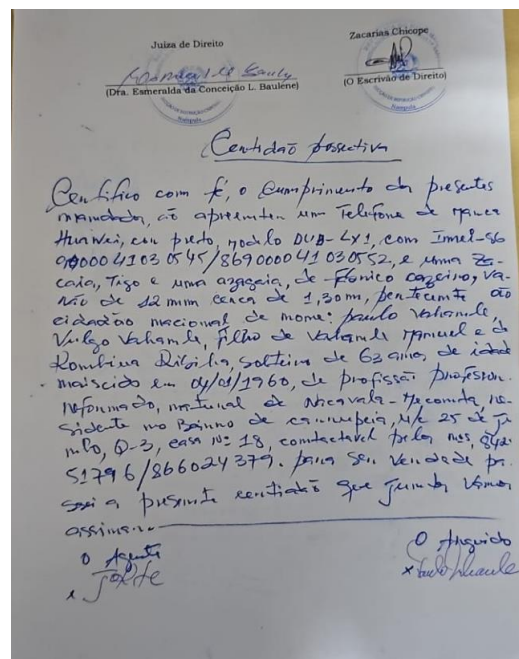 Juiza de Direito
Zacarias Chicope
(Dra. Esmeralda da Conceição L. Baulene)
(O Escrivão de Direito)
Nampula
Nampula
Certidão possectiva
Certifico com fé, o cumprimento da presentes
mandada, ao apreenten um Telefone de marca
Huawei, cor preto, modelo DUB-LX1, com Imel-86
0000041030545/869000041030552, e uma
Tigo e uma azagaia, de cazeiro, va-
rão de 12 mm cerca de 1,30m, pertecente ao
cidadão nacional de nome: paulo Vahamle,
Vulgo Vahamle, filho de Vahamle manuel e de
Rombina solteiro de 63 anos, de idade
naiscido em 04/01/1960, de profissão professor
reformado, natural de Nacavala-Meconta re-
sidente no Bairro de U/c 25 de Ju
nho, Q-3, casa Nº 18, comtactavel pelos nos,
51796/866024379. para ser verdade pa-
ssei a presente certidão que juntos vamos
assinar.
O Agente
O Arguido
Jorte
x